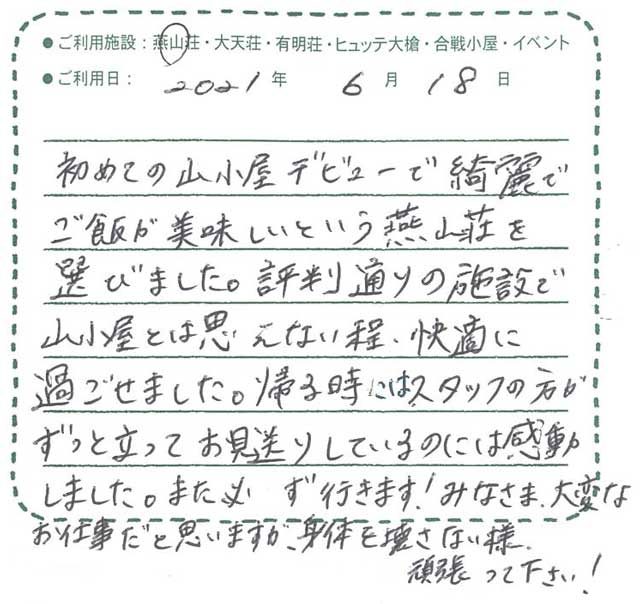 ● ご利用施設：燕山荘・大天荘・有明荘・ヒュッテ大槍・合戦小屋・イベント
● ご利用日： 2021 年 6 月 18 日
初めての山小屋デビューで綺麗で
ご飯が美味しいという燕山荘を
選びました。評判通りの施設で
山小屋とは思えない程、快適に
過ごせました。帰る時にはスタッフの方が
ずっと立ってお見送りしているのには感動
しました。また必ず行きます！みなさま、大変な
お仕事だと思いますが、身体を壊さない様、
頑張って下さい！